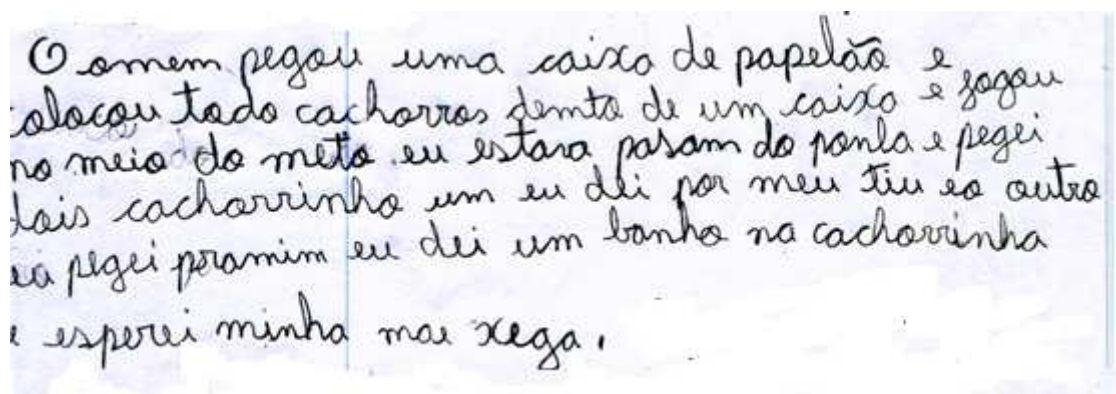 O omem pegou uma caixa de papelão e
colocou todo cachorros demto de um caixo e jogou
no meio do mato eu estava pasam do ponla e pegei
dois cachorrinho um eu dei por meu tiu eo outro
eu pegei pramim eu dei um banho na cachorrinha
e esperei minha mae xega.